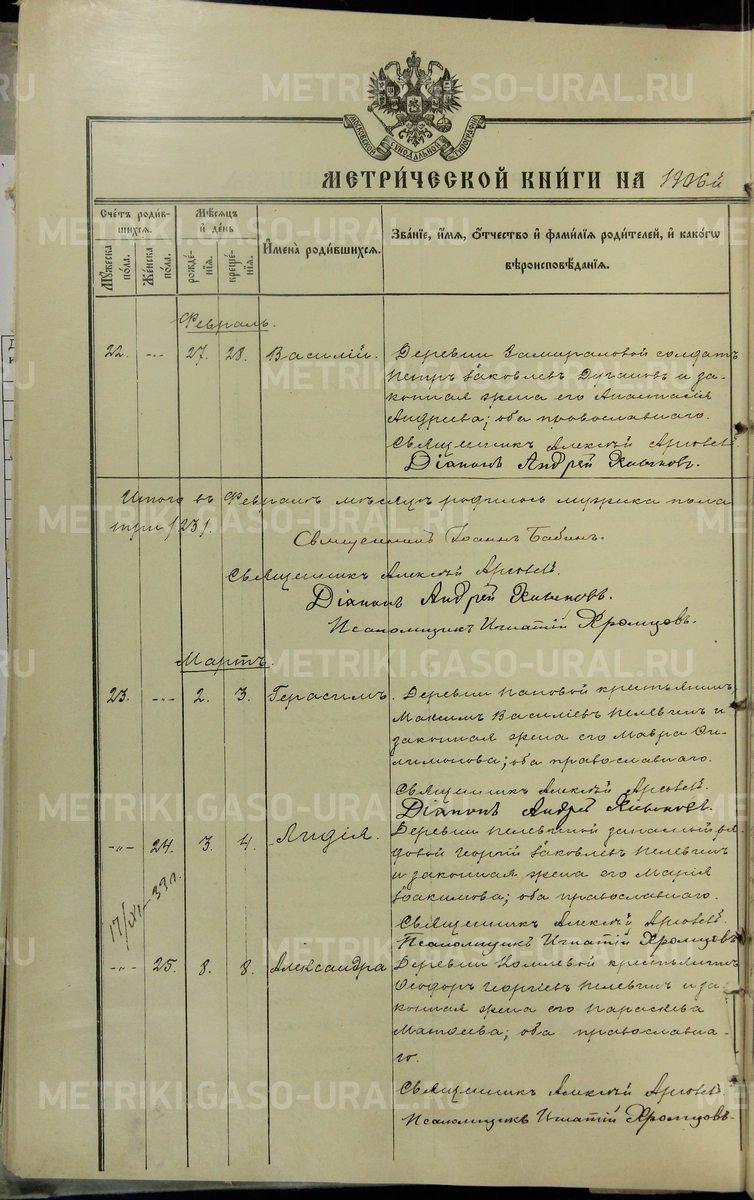 METRIKI.GASO-URAL.RU
МОСКОВСКОЙ СѴНОДАЛЬНОЙ ТИПОГРАФІИ
МЕТРИ́ЧЕСКОЙ КНИ́ГИ НА 1906й
Счетъ роди́вшихся.
Мꙋ́жеска по́ла.
Же́нска по́ла.
Мѣ́сяцъ и҆ де́нь
рожде́нїѧ.
креще́нїѧ.
И҆мена̀ роди́вшихсѧ.
Зва́нїе, и҆́мѧ, ѻ҆́тчество и҆ фами́лїѧ роди́телей, и҆ како́гѡ
вѣроисповѣ́данїѧ.
Февраль.
22. -„- 27. 28. Василій. Деревни Замираловой солдатъ
Петръ Іаковлевъ Дугановъ и за-
конная жена его Анастасія
Андреева; оба православнаго.
Священникъ Алексій
Діаконъ Андрей
Итого въ Февралѣ мѣсяцѣ родилось мужеска пола
три /23/.
Священникъ Іоаннъ Бабинъ.
Священникъ Алексій
Діаконъ Андрей
Псаломщикъ Игнатій Хромцовъ.
Мартъ.
23. -„- 2. 3. Герасимъ. Деревни Поповой крестьянинъ
Максимъ Василіевъ Пелевинъ и
законная жена его Мавра Фи-
лимонова; оба православнаго.
Священникъ Алексій
Діаконъ Андрей
-„- 24. 3. 4. Лидія. Деревни Пелевиной запасный ря-
довой Георгій Іаковлевъ Пелевинъ
и законная жена его Марія
Іоакимова; оба православнаго.
17/XI-33 г.
Священникъ Алексій
Псаломщикъ Игнатій Хромцовъ
-„- 25. 8. 8. Александра Деревни крестьянинъ
Ѳеодоръ Георгіевъ Пелевинъ и за-
конная жена его Параскева
Матѳеева; оба православна-
го.
Священникъ Алексій
Псаломщикъ Игнатій Хромцовъ.